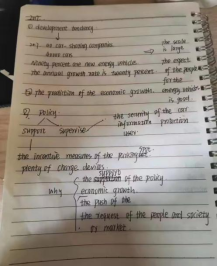 INT
① development tendency
car-sharing companies
the scale
is large
ninety percent are new energy vehicle.
the expect
the annual growth rate is twenty percent
of the people
for the
② the prediction of the economic growth.
energy vehicle
is good
② policy
support supervise
the security of the car
information protection
user
the incentive measures of the
plenty of charge devices
why
support
the of the policy
economic growth
the push of the
the request of the people and society
market